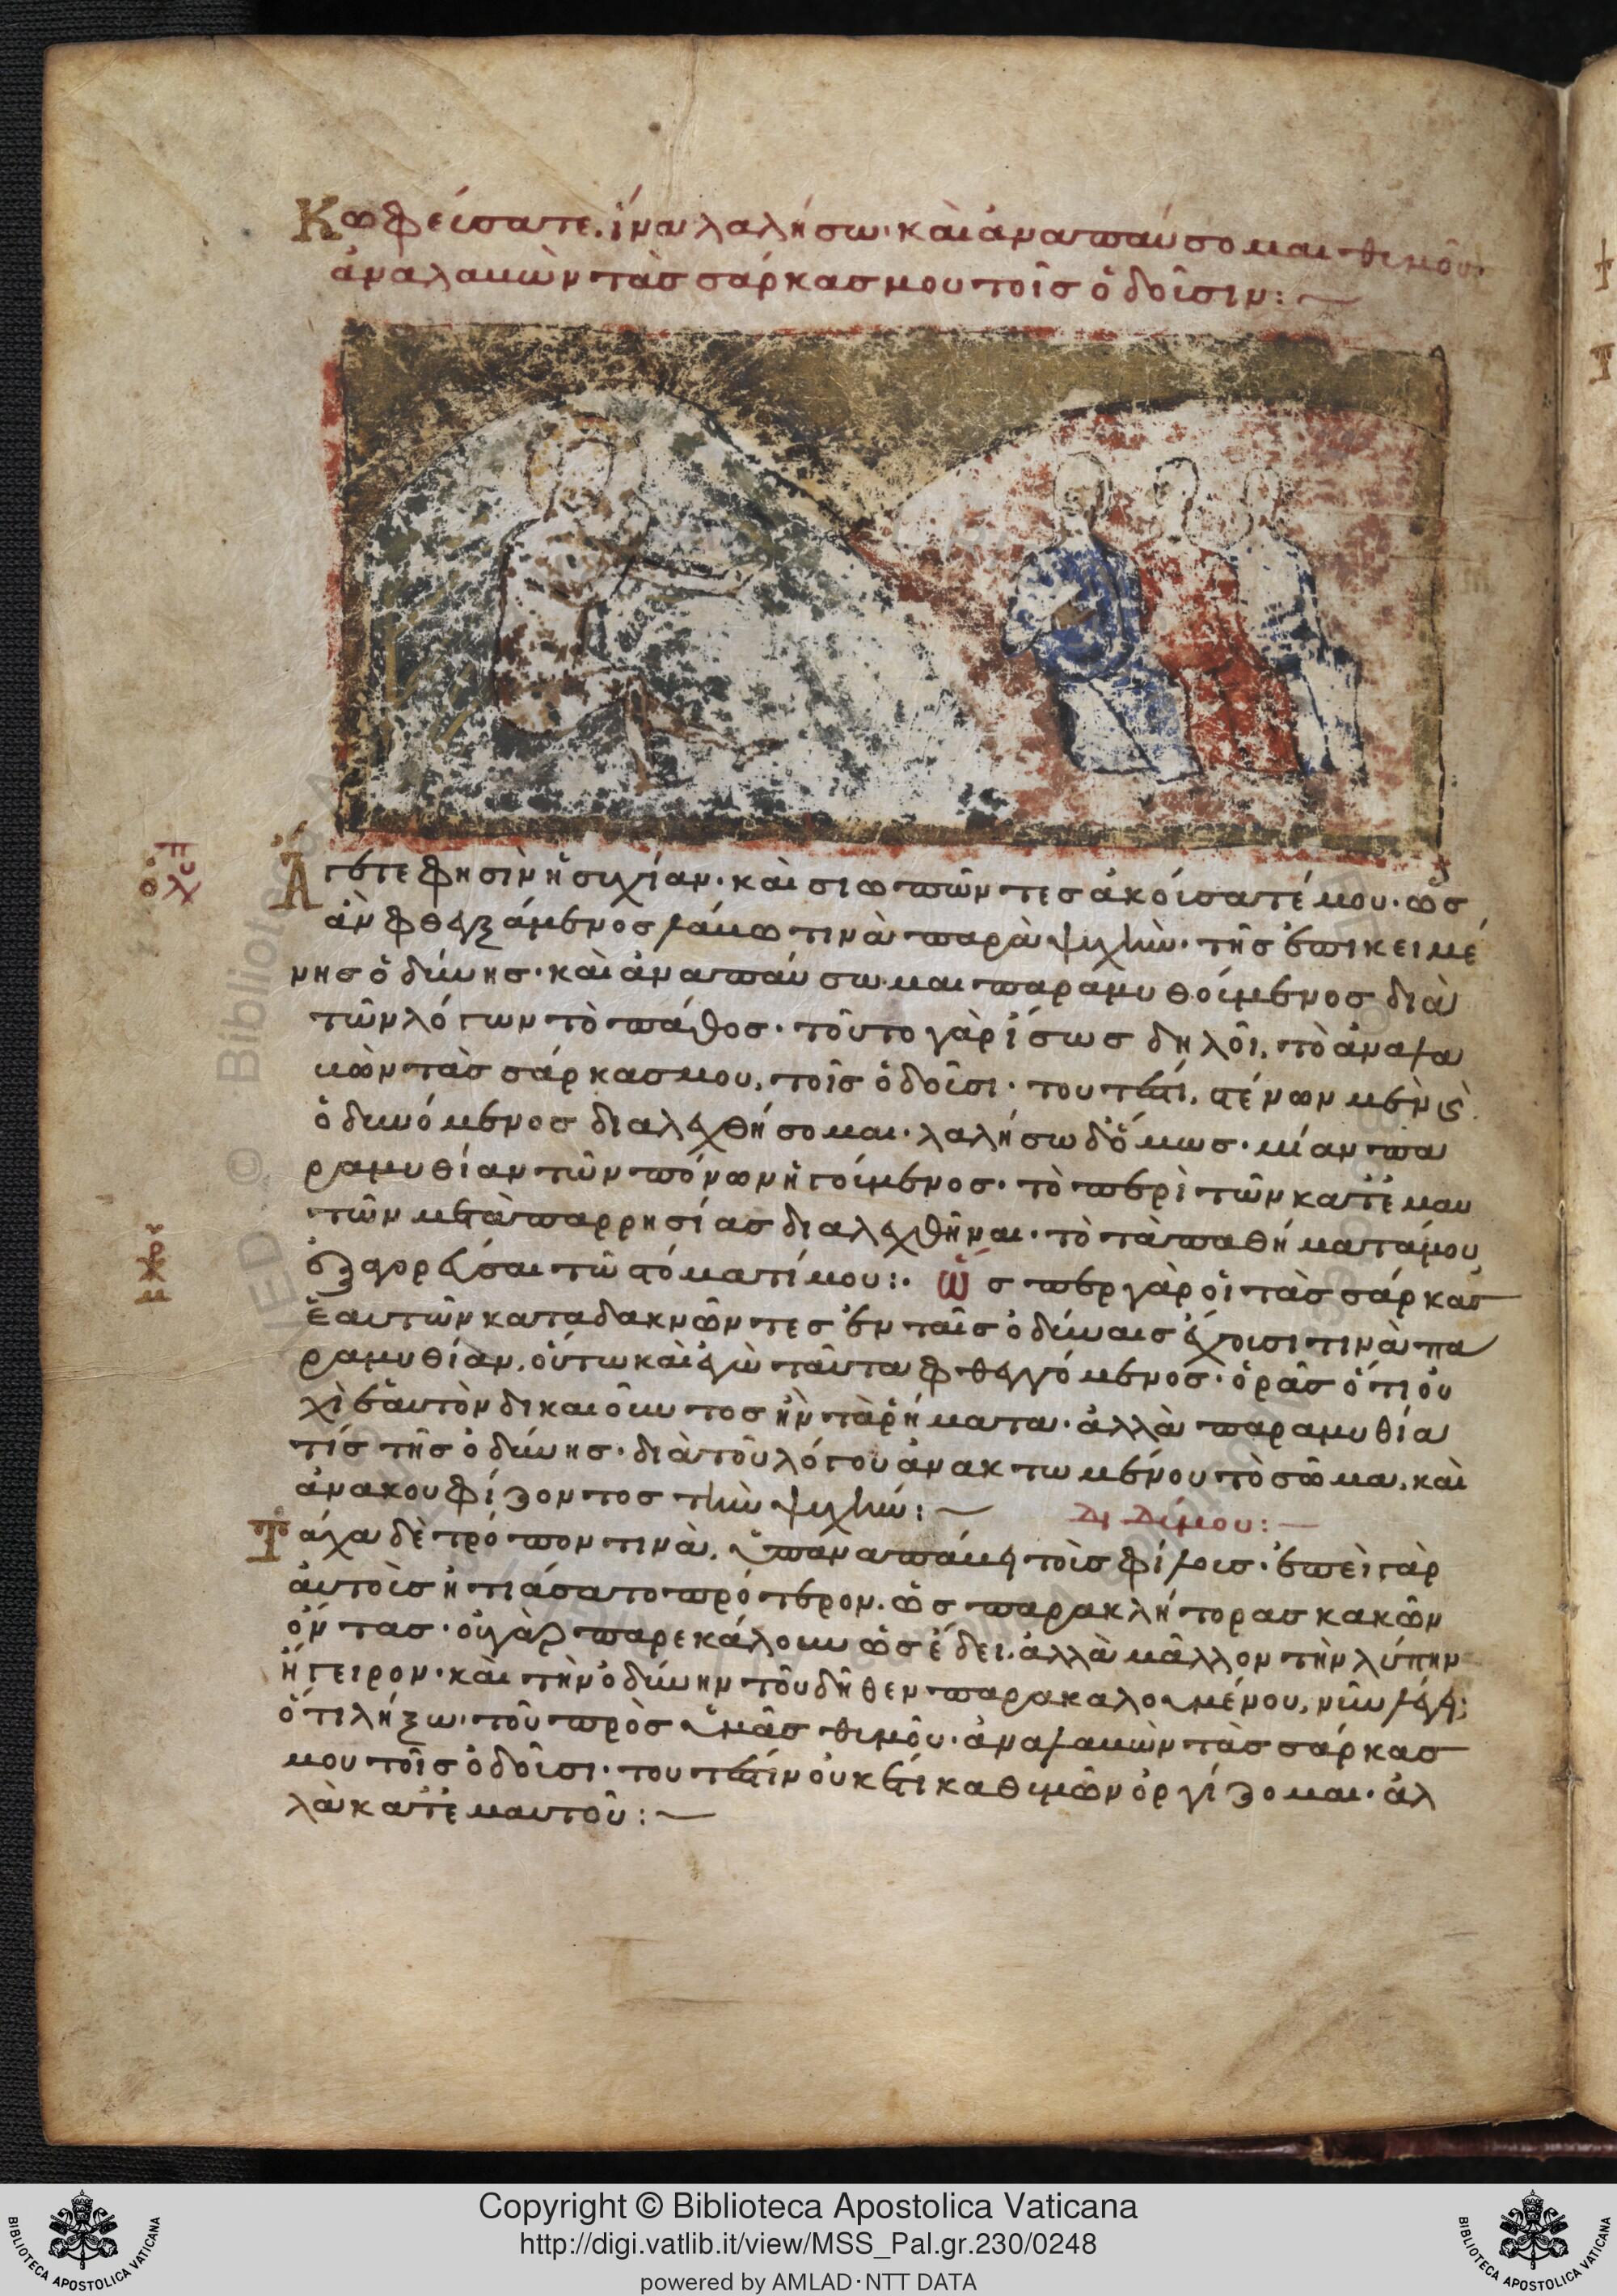 Κωφεύσατε. ἵνα λαλήσω· καὶ ἀναπαύσομαι θυμοῦ·
ἀναλαβὼν τὰς σάρκας μου τοῖς ὀδοῦσιν:
Ἄγετε φησὶν ἡσυχίαν· καὶ σιωπῶντες ἀκούσατέ μου· ὡς
ἂν φθεγξάμενος λάβω τινὰ παρὰ ψυχὴν· τῆς ἐπικειμέ
νης ὀδύνης· καὶ ἀναπαύσωμαι παραμυθούμενος διὰ
τῶν λόγων τὸ πάθος· τοῦτο γὰρ ἴσως δηλοῖ, τὸ ἀναλα
βὼν τὰς σάρκας μου, τοῖς ὀδοῦσι· τουτέστι, στένων μὲν καὶ
ὀδυνόμενος διαλεχθήσομαι· λαλήσω δ' ὅμως· μίαν πα
ραμυθίαν τῶν πόνων ἡγούμενος· τὸ περὶ τῶν κατ' ἐμαυ
τῶν μετὰ παρρησίας διαλεχθῆναι· τὸ τὰ παθήματά μου
ἐξαγορεῦσαι τῷ στόματί μου:· Ὥσπερ γὰρ οἱ τὰς σάρκας
ἑαυτῶν καταδάκνωντες ἐν ταῖς ὀδύναις ἔχουσι τινὰ πα
ραμυθίαν, οὕτω καὶ ἐγὼ ταῦτα φθεγγόμενος· ὁρᾷς ὅτι οὐ
χὶ ἑαυτὸν δικαιοῦντος ἦν τὰ ῥήματα· ἀλλὰ παραμυθία
τίς τῆς ὀδύνης· διὰ τοῦ λόγου ἀνακτωμένου τὸ σῶμα, καὶ
ἀνακουφίζοντος τὴν ψυχήν:
Διδύμου:
Τάχα δὲ τρόπον τινὰ, ὑπαναπαύει τοῖς φίλοις· ἐπεὶ γὰρ
αὐτοὺς ἠτιάσατο πρότερον. ὡς παρακλήτορας κακῶν
ὄντας· οὐ γὰρ παρεκάλουν ὡς ἔδει. ἀλλὰ μᾶλλον τὴν λύπην
ἤγειρον· καὶ τὴν ὀδύνην τοῦ δῆθεν παρακαλουμένου, νῦν λέγει·
ὅτι λήξω· τοῦ πρὸς ὑμᾶς θυμοῦ· ἀναλαβὼν τὰς σάρκας
μου τοῖς ὀδοῦσι· τουτέστιν οὐκ ἔτι καθ' ὑμῶν ὀργίζομαι· ἀλ
λὰ κατ' ἐμαυτοῦ:
Copyright © Biblioteca Apostolica Vaticana
http://digi.vatlib.it/view/MSS_Pal.gr.230/0248
powered by AMLAD·NTT DATA
BIBLIOTECA APOSTOLICA VATICANA
BIBLIOTECA APOSTOLICA VATICANA